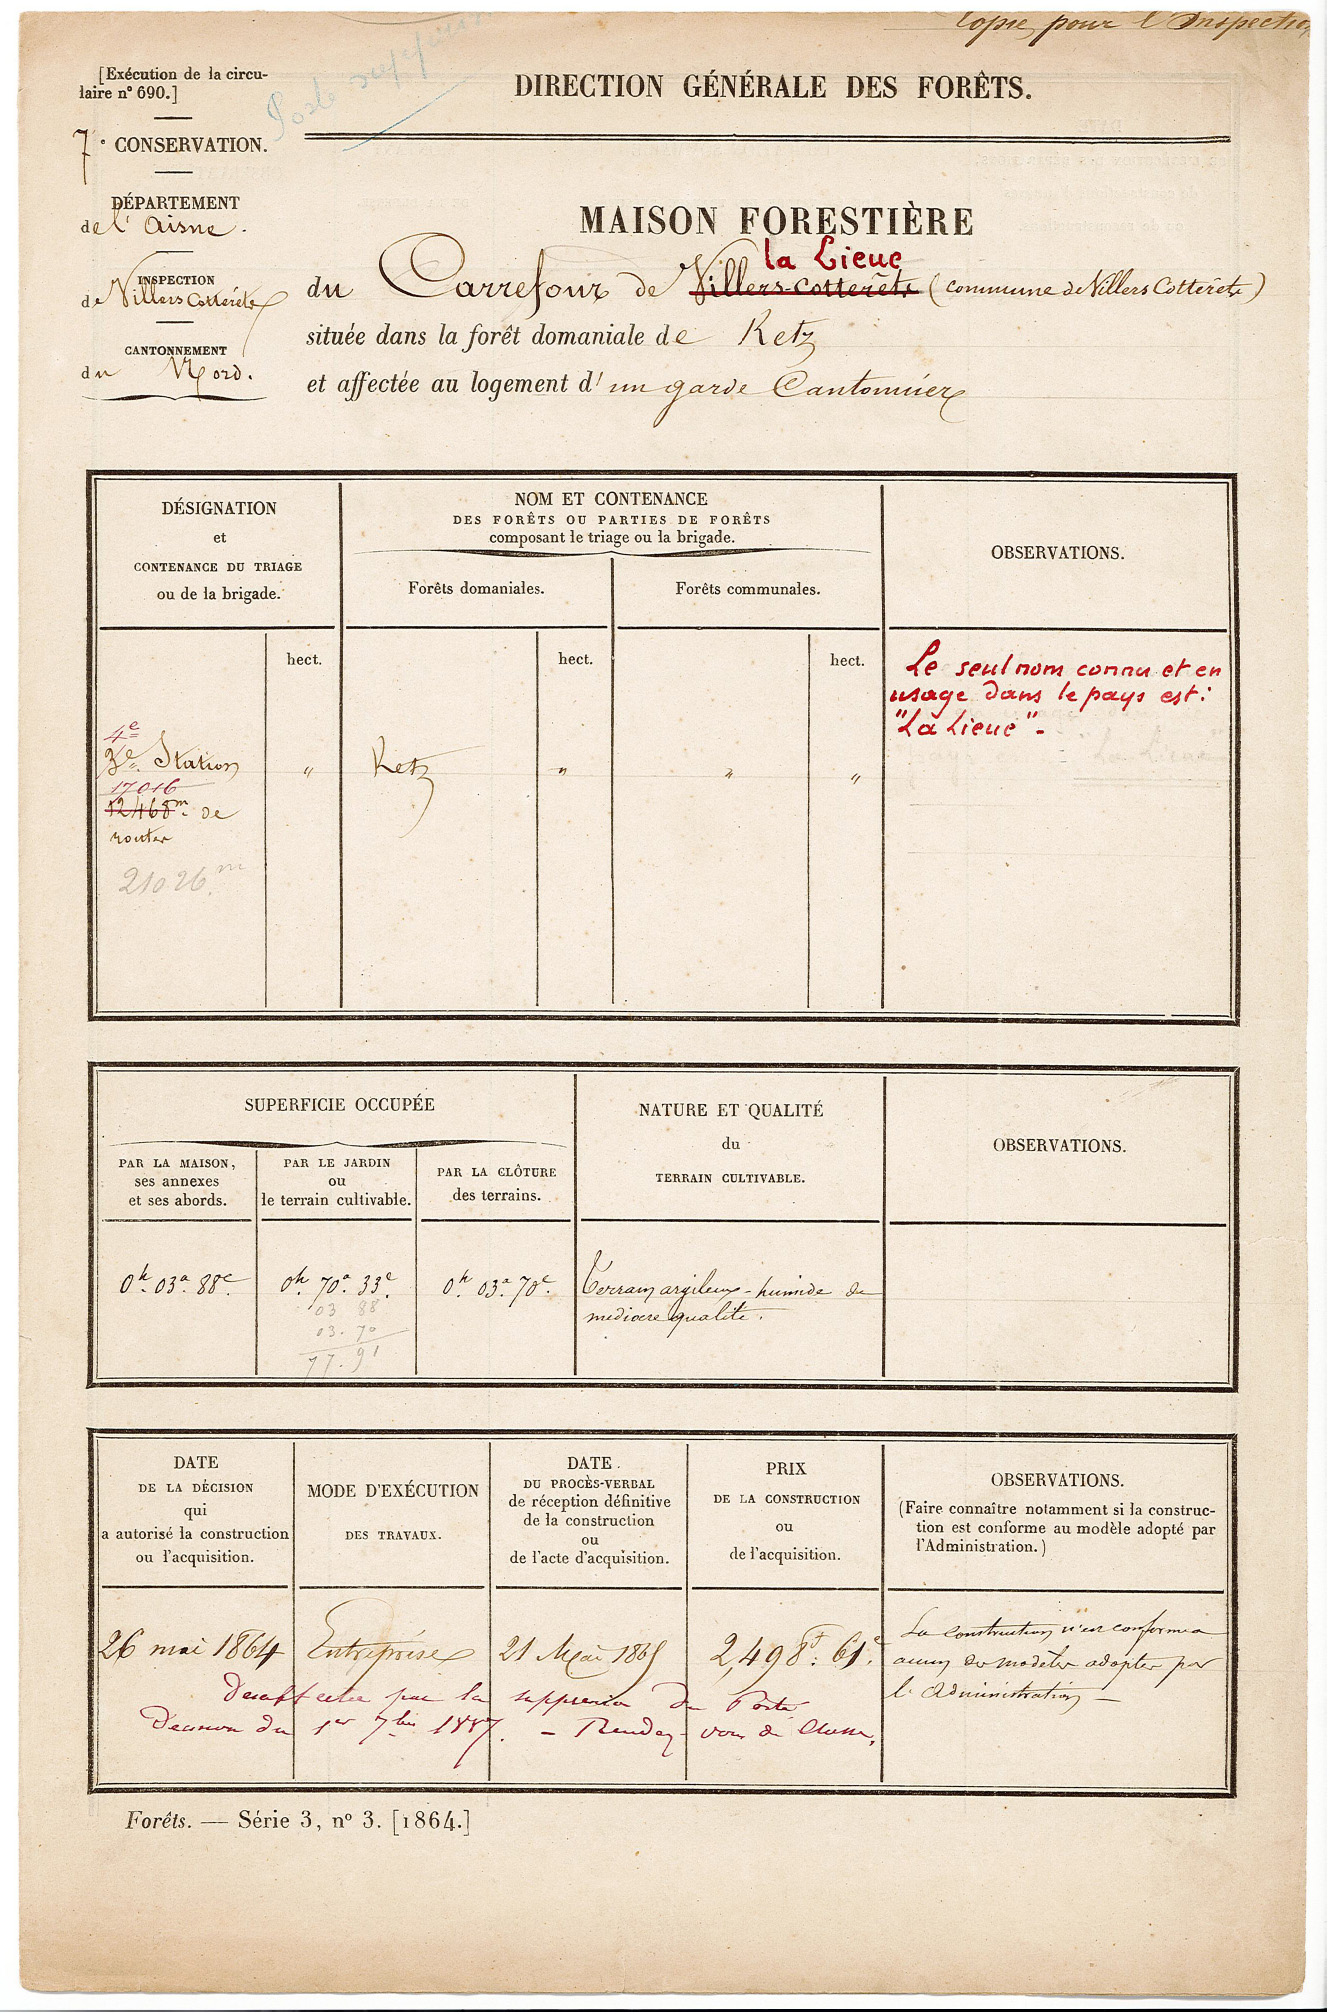 Copie pour l'Inspection
[Exécution de la circu-
laire n° 690.]
Poste supprimé
DIRECTION GÉNÉRALE DES FORÊTS.
7e CONSERVATION.
DÉPARTEMENT
de l'Aisne.
INSPECTION
de Villers Cotterêts
CANTONNEMENT
du Nord.
MAISON FORESTIÈRE
la Lieue
du Carrefour de Villers-Cotterêts (commune de Villers Cotterêts)
située dans la forêt domaniale de Retz
et affectée au logement d'un garde Cantonnier
DÉSIGNATION
et
CONTENANCE DU TRIAGE
ou de la brigade.
NOM ET CONTENANCE
DES FORÊTS OU PARTIES DE FORÊTS
composant le triage ou la brigade.
Forêts domaniales.
Forêts communales.
OBSERVATIONS.
hect.
hect.
hect.
Le seul nom connu et en
usage dans le pays est:
"La Lieue"-
4e
3e Station
"
Retz
"
"
"
17016
12468m de
routes
21026m
SUPERFICIE OCCUPÉE
PAR LA MAISON,
ses annexes
et ses abords.
PAR LE JARDIN
ou
le terrain cultivable.
PAR LA CLÔTURE
des terrains.
NATURE ET QUALITÉ
du
TERRAIN CULTIVABLE.
OBSERVATIONS.
0h. 03a 88c.
0h. 70a 33c.
03 88
03.70
77.91
0h. 03a 70c.
Terrain argileux - humide de
mediocre qualité.
DATE
DE LA DÉCISION
qui
a autorisé la construction
ou l'acquisition.
MODE D'EXÉCUTION
DES TRAVAUX.
DATE
DU PROCÈS-VERBAL
de réception définitive
de la construction
ou
de l'acte d'acquisition.
PRIX
DE LA CONSTRUCTION
ou
de l'acquisition.
OBSERVATIONS.
(Faire connaître notamment si la construc-
tion est conforme au modèle adopté par
l'Administration.)
26 mai 1864
Entreprise
21 Mai 1865
2,498f. 61c.
La construction n'est conforme a
aucun des modèles adoptés par
l'Administration —
Desaffectée par la suppression du Poste
Decision du 1er 7bre 1887. - Rendez-vous de Chasse.
Forêts. — Série 3, n° 3. [1864.]